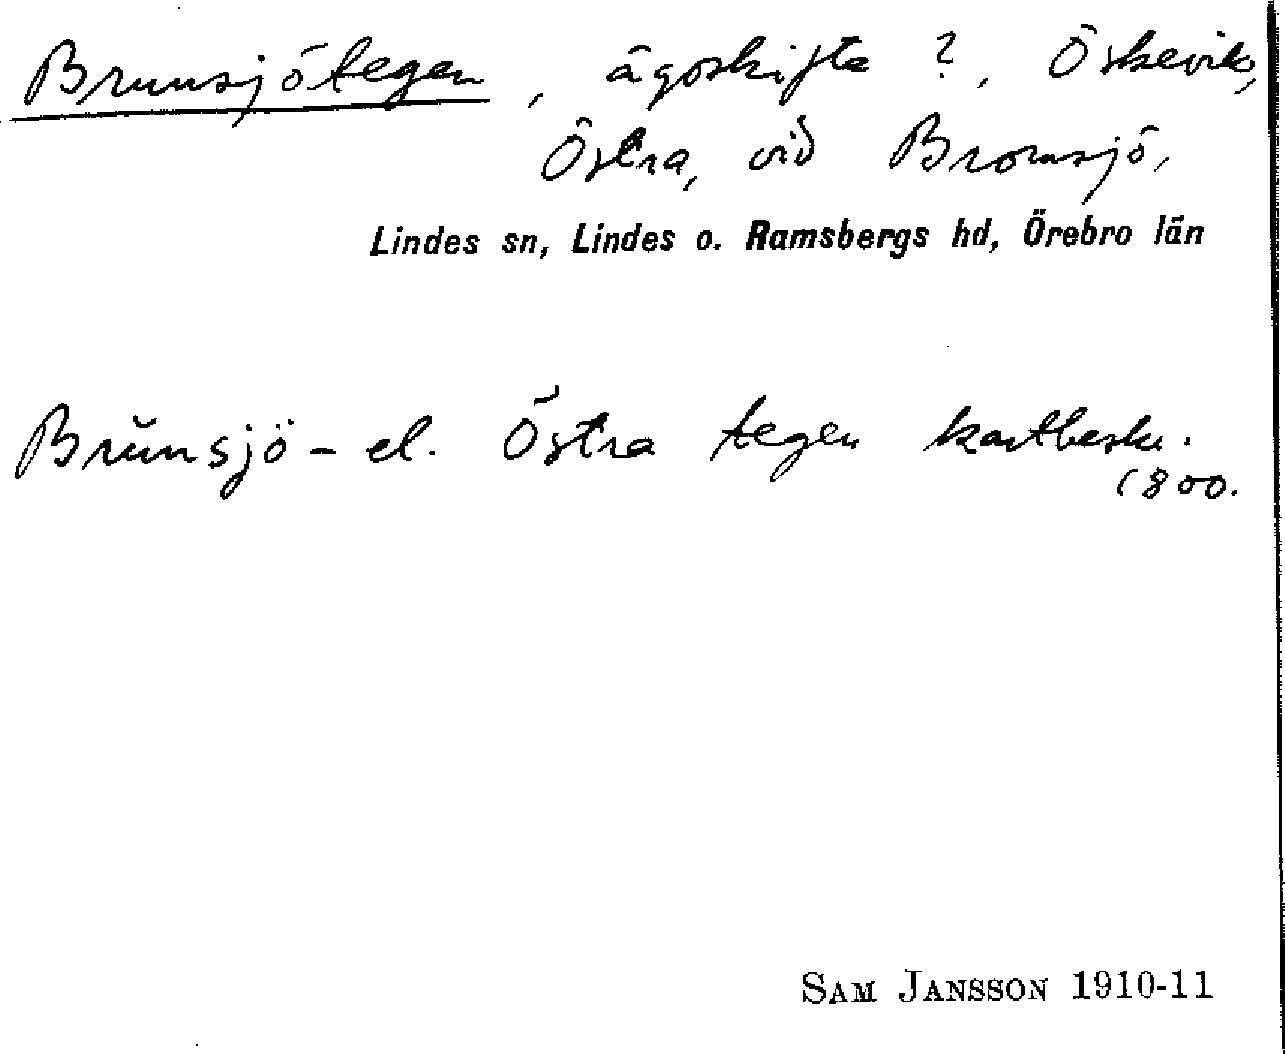 Brunsjötegen, ägoskifte ?, Öskevik,
Östra, vid Bromsjö,
Lindes sn, Lindes o. Ramsbergs hd, Örebro län
Brŭnsjö- el. Östra tegen kartbeskr.
1800.
SAM JANSSON 1910-11